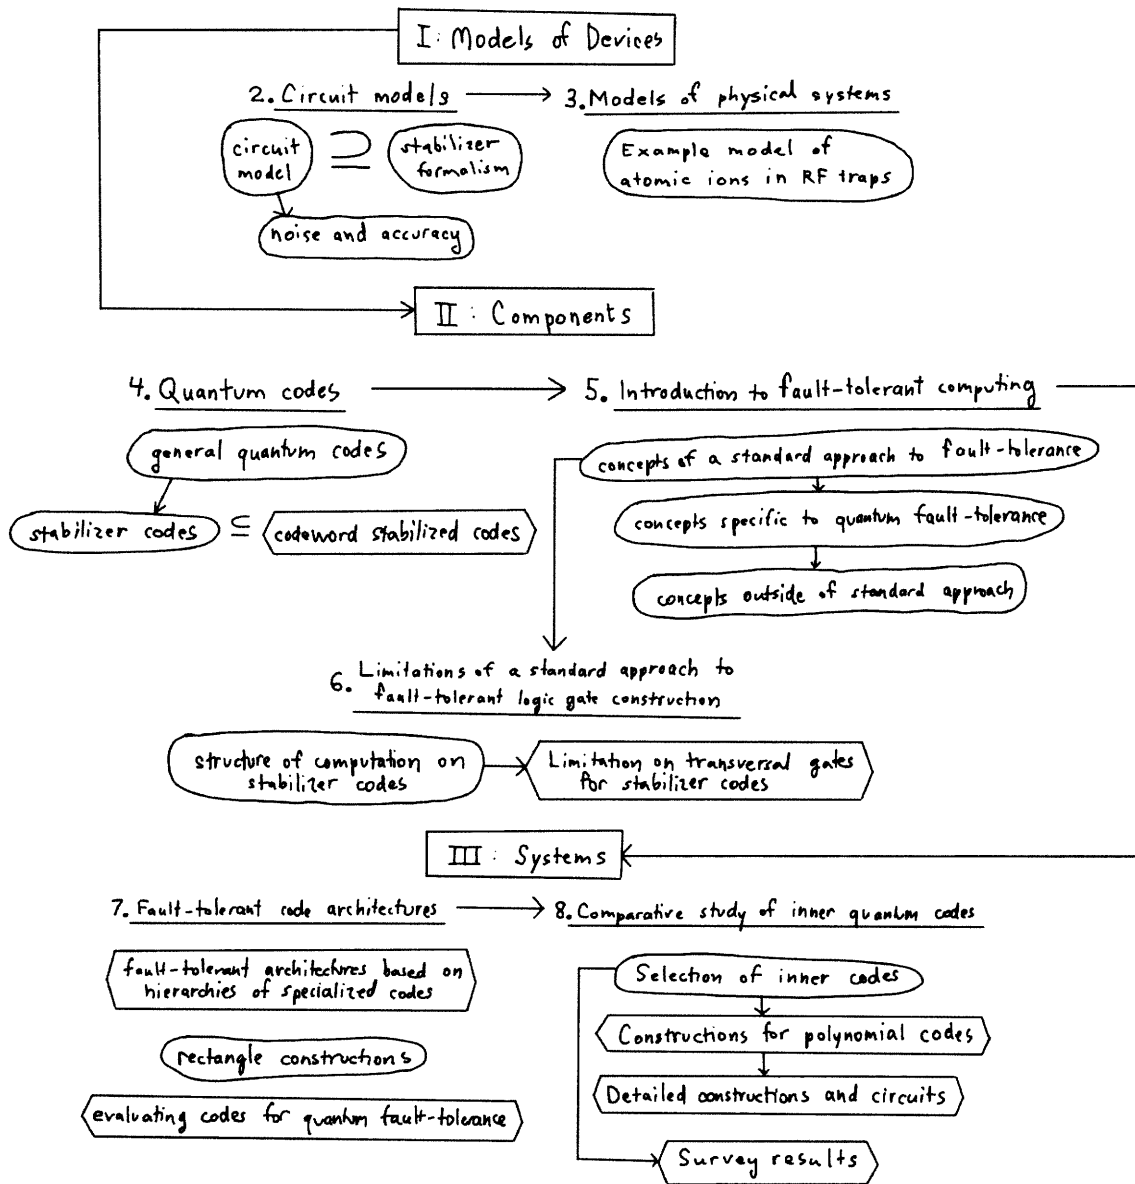 I: Models of Devices
2. Circuit models
3. Models of physical systems
circuit
model
⊇
stabilizer
formalism
Example model of
atomic ions in RF traps
noise and accuracy
II: Components
4. Quantum codes
5. Introduction to fault-tolerant computing
general quantum codes
concepts of a standard approach to fault-tolerance
stabilizer codes ⊆ codeword stabilized codes
concepts specific to quantum fault-tolerance
concepts outside of standard approach
6. Limitations of a standard approach to
fault-tolerant logic gate construction
structure of computation on
stabilizer codes
Limitation on transversal gates
for stabilizer codes
III: Systems
7. Fault-tolerant code architectures
8. Comparative study of inner quantum codes
fault-tolerant architectures based on
hierarchies of specialized codes
rectangle constructions
evaluating codes for quantum fault-tolerance
Selection of inner codes
Constructions for polynomial codes
Detailed constructions and circuits
Survey results